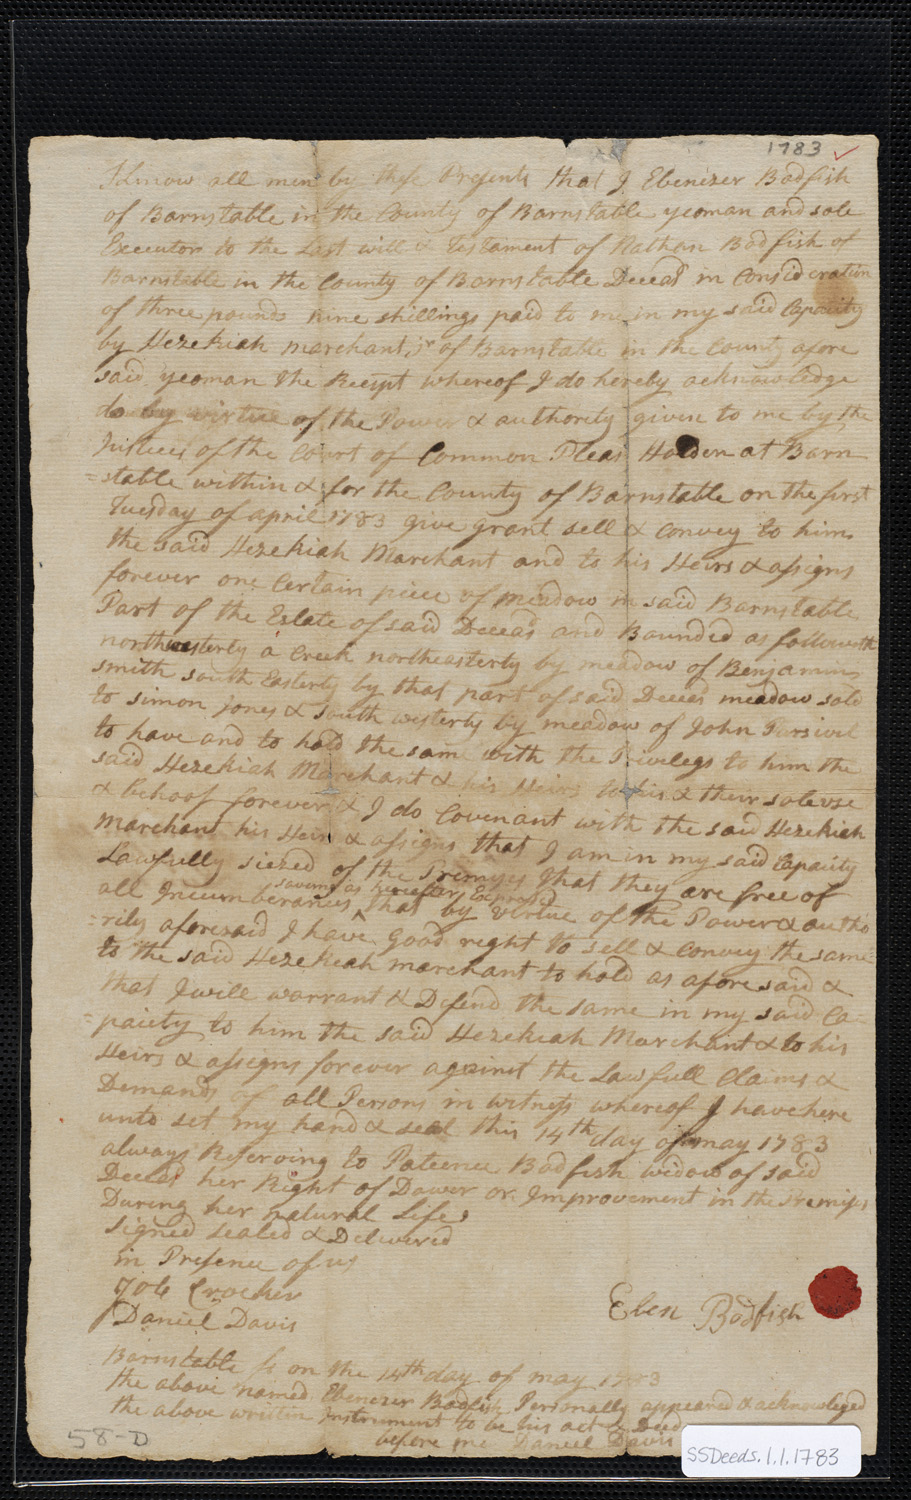 1783
Know all men by these Presents that I Ebenezer Bodfish
of Barnstable in the County of Barnstable yeoman and sole
Executor to the Last will & Testament of Nathan Bodfish of
Barnstable in the County of Barnstable Deceas'd in Consideration
of three pounds nine shillings paid to me in my said Capacity
by Hezekiah marchant jr of Barnstable in the County afore
said yeoman the Receipt whereof I do hereby acknowledge
do by virtue of the Power & authority given to me by the
Justices of the Court of Common Pleas Holden at Barn
=stable within & for the County of Barnstable on the first
Tuesday of april 1783 give grant sell & Convey to him
the said Hezekiah Marchant and to his Heirs & assigns
forever one Certain piece of meadow in said Barnstable
Part of the Estate of said Deceas'd and Bounded as followeth
northwesterly a Creek northeasterly by meadow of Benjamin
Smith south Easterly by that part of said Deceas'd meadow sold
to simon jones & south westerly by meadow of John
to have and to hold the same with the Privelegs to him the
said Hezekiah Marchant & his Heirs to his & their sole use
& behoof forever & I do Covenant with the said Hezekiah
Marchant his Heirs & assigns that I am in my said Capacity
Lawfully siezed of the Premises that they are free of
saving as hereafter Expressed
all Incumberances that by virtue of the Power & autho
=rity aforesaid I have Good right to sell & Convey the same
to the said Hezekiah marchant to hold as afore said &
that I will warrant & Defend the same in my said Ca
=pacity to him the said Hezekiah Marchant & to his
Heirs & assigns forever against the Lawfull Claims &
Demands of all Persons in witness whereof I have here
unto set my hand & seal this 14th day of may 1783
always Reserving to Patience Bodfish widow of said
Deceas'd her Right of Dower or Improvement in the Premises
During her natural Life
signed sealed & Delivered
in Presence of us
Job Crocker
Daniel Davis
Eben Bodfish
Barnstable ss on the 14th day of may 1783
the above named Ebenezer Bodfish Personally appeared & acknowleged
the above written Instrument to be his act & Deed
before me Daniel Davis
58-D
SSDeeds.1.1.1783